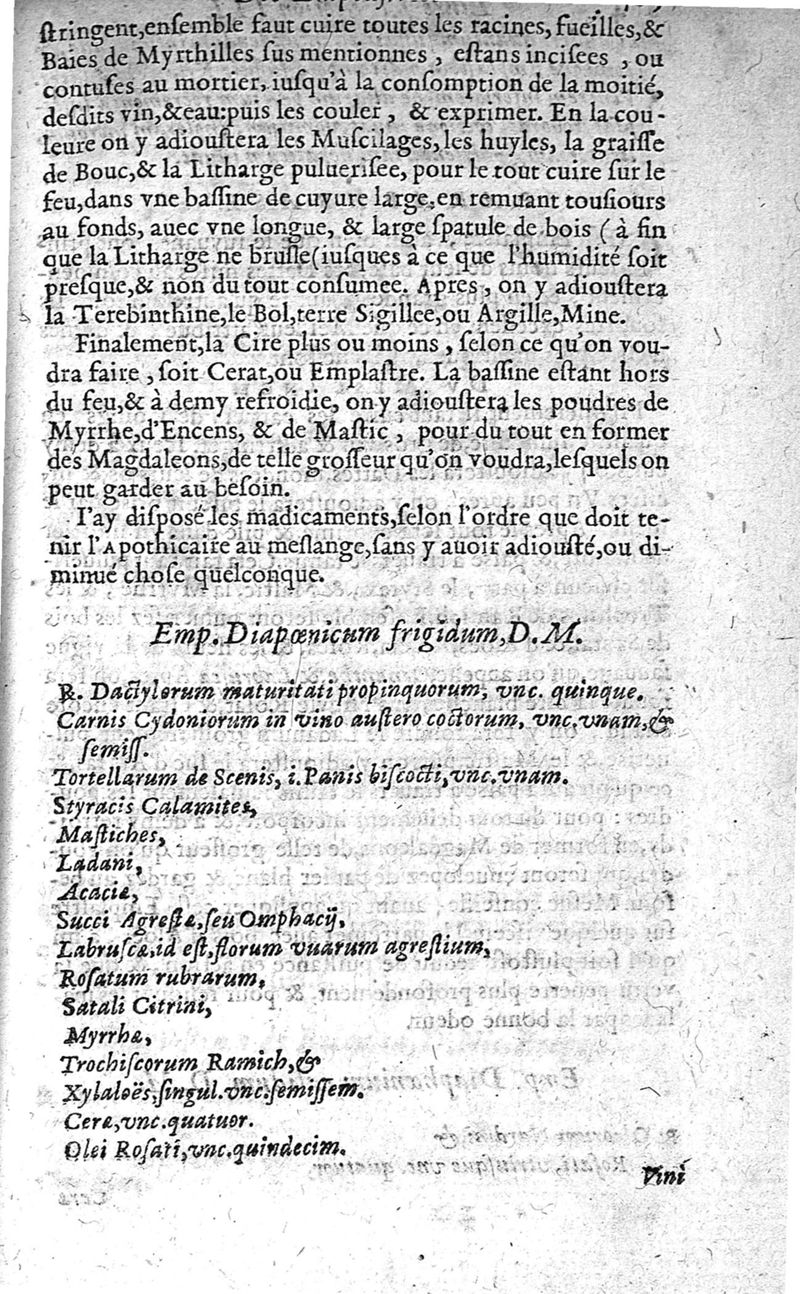 ſtringent,enſemble faut cuire toutes les racines, fueilles,&
Baies de Myrthilles ſus mentionnes , eſtans inciſees , ou
contuſes au mortier, iuſqu'à la conſomption de la moitié,
deſdits vin,&eau:puis les couler , & exprimer. En la cou-
leure on y adiouſtera les Muſcilages,les huyles, la graiſſe
de Bouc,& la Litharge pulueriſee, pour le tout cuire ſur le
feu,dans vne baſſine de cuyure large,en remuant touſiours
au fonds, auec vne longue, & large ſpatule de bois ( à fin
que la Litharge ne bruſle(iuſques à ce que l'humidité ſoit
preſque,& non du tout conſumee. Apres , on y adiouſtera
la Terebinthine,le Bol,terre Sigillee,ou Argille,Mine.
Finalement,la Cire plus ou moins , ſelon ce qu'on vou-
dra faire , ſoit Cerat,ou Emplaſtre. La baſſine eſtant hors
du feu,& à demy refroidie, on y adiouſtera les poudres de
Myrrhe,d'Encens, & de Maſtic , pour du tout en former
des Magdaleons,de telle groſſeur qu'on voudra,leſquels on
peut garder au beſoin.
I'ay diſpoſé les madicaments,ſelon l'ordre que doit te-
nir l'Apothicaire au meſlange,ſans y auoir adiouſté,ou di-
minué choſe quelconque.
Emp. Diapœnicum frigidum, D. M.
R. Dactylorum maturitati propinquorum, vnc. quinque.
Carnis Cydoniorum in vino auſtero coctorum, vnc.vnam,&
ſemiſſ.
Tortellarum de Scenis, i.Panis biſcocti,vnc.vnam.
Styracis Calamites,
Maſtiches,
Ladani,
Acaciæ,
Succi Agreſtæ,ſeu Omphacij,
Labruſcæ,id eſt,florum vuarum agreſtium,
Roſatum rubrarum,
Satali Citrini,
Myrrhæ,
Trochiſcorum Ramich,&
Xylaloës,ſingul.vnc.ſemiſſem.
Ceræ,vnc.quatuor.
Olei Roſati,vnc.quindecim.
Vini